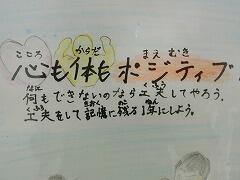 こころ からだ まえ むき
心も体もポジティブ
なに くふう
何もできないのなら工夫してやろう。
くふう きおく のこ ねん
工夫をして記憶に残る1年にしよう。